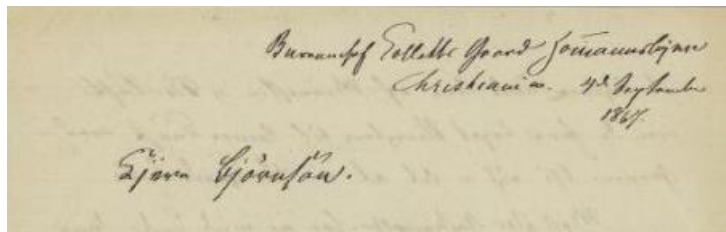 Bureauchef Colletts Gaard Homannsbyen
Christiania. 4de September
1867.
Kjere Bjørnson.